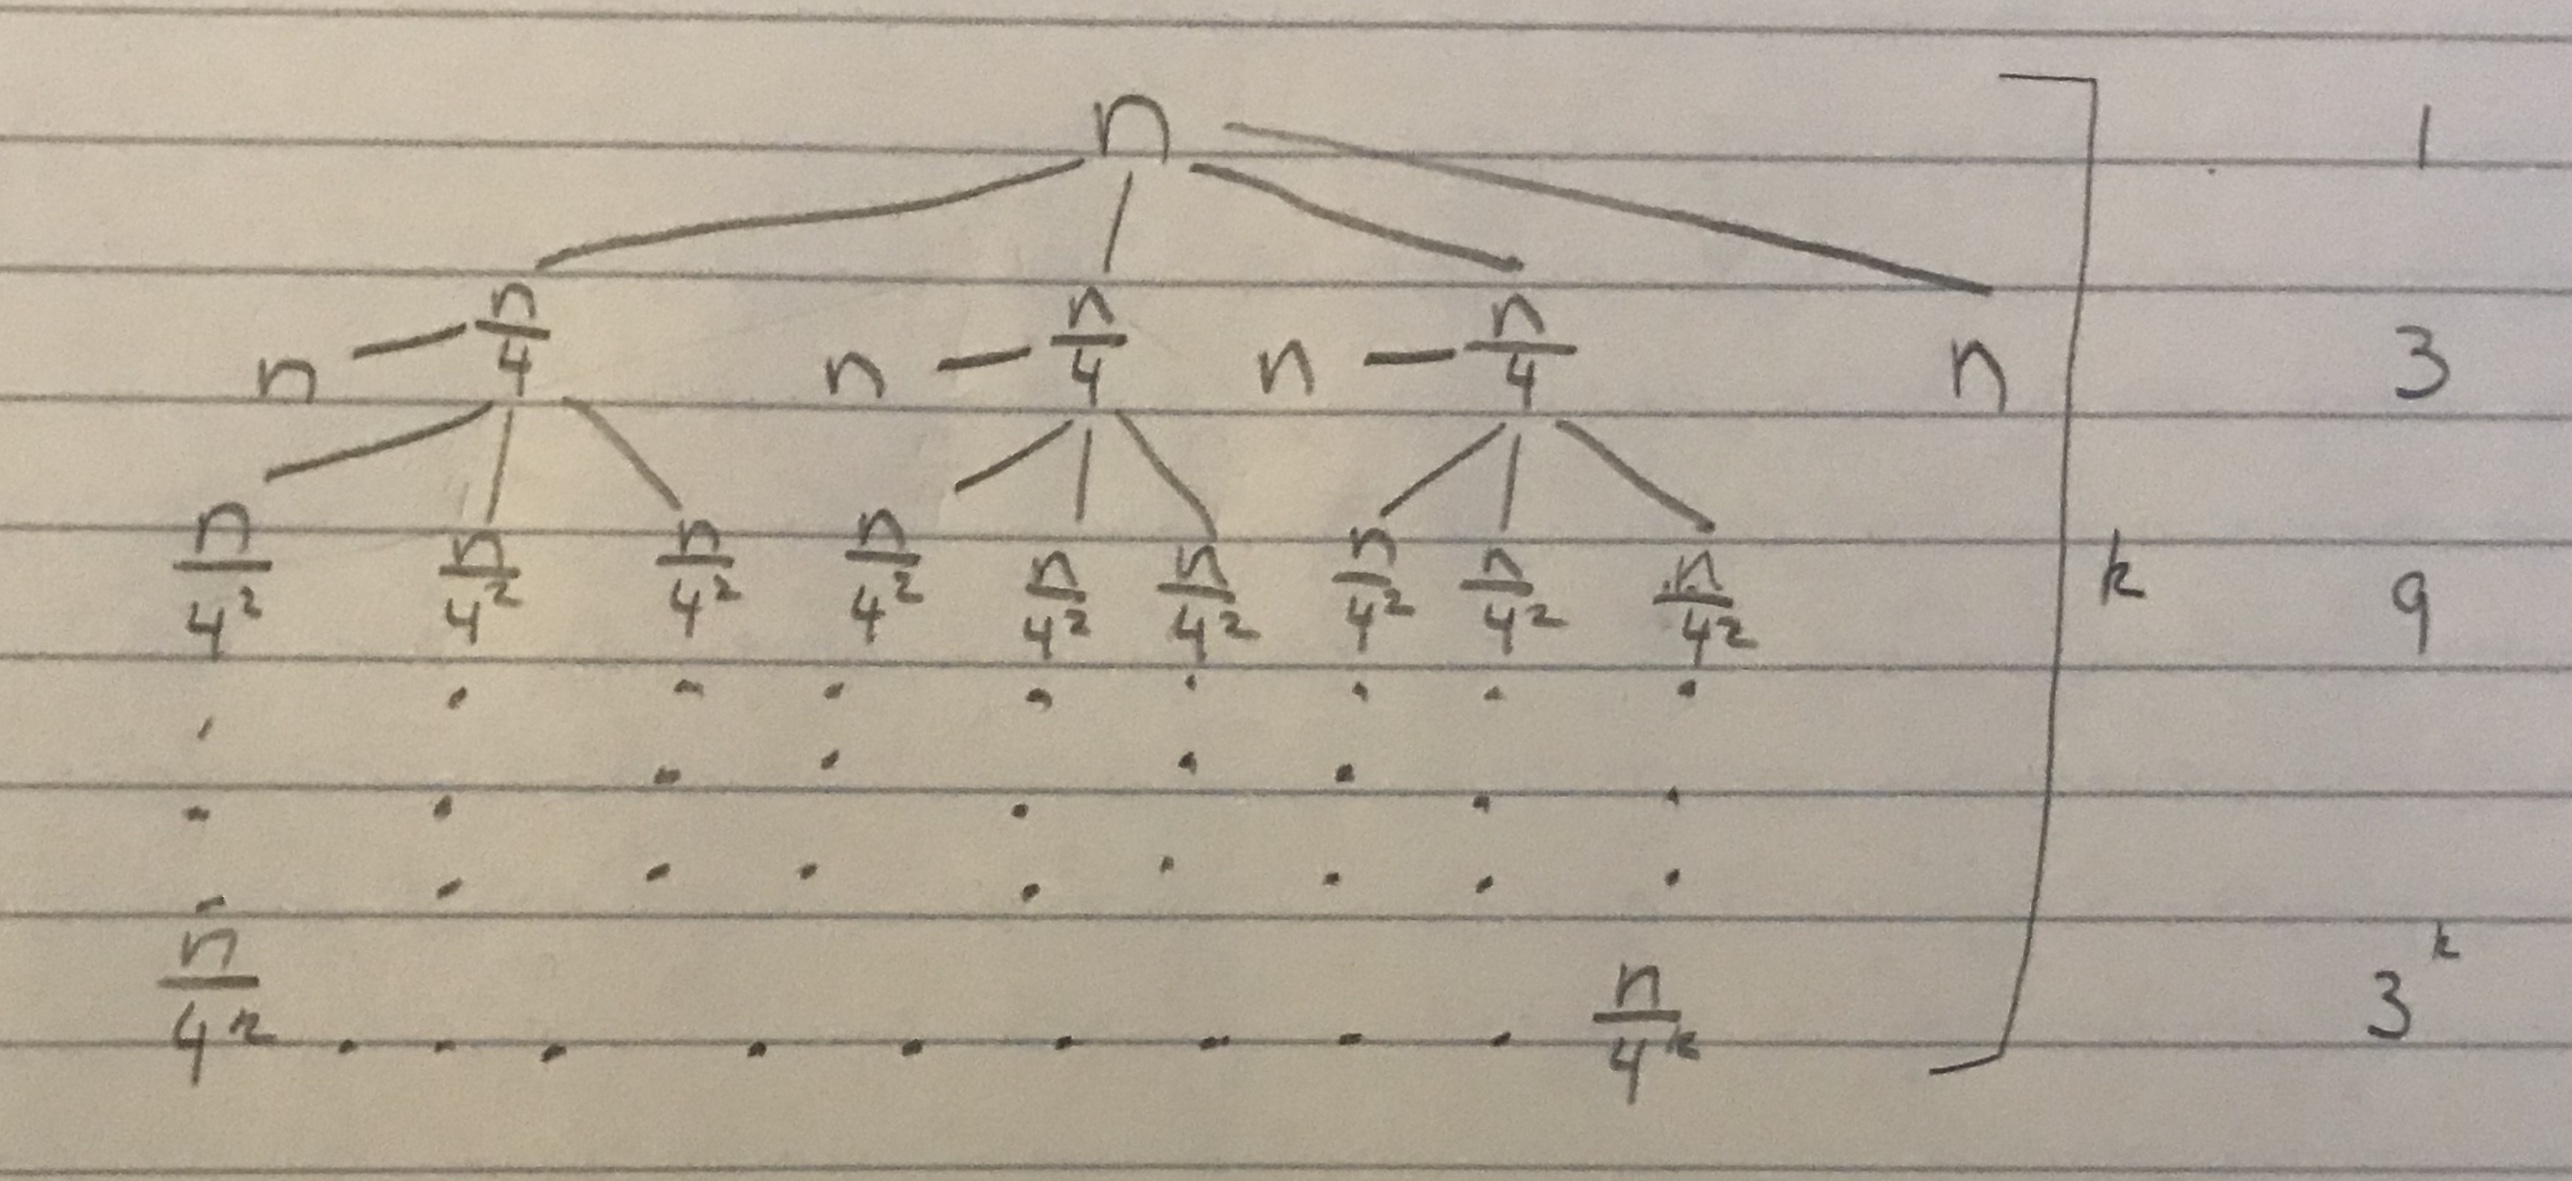 n 1
n — n/4 n — n/4 n — n/4 n 3
n/4² n/4² n/4² n/4² n/4² n/4² n/4² n/4² n/4² k 9
n/4ᵏ . . . . . . . . . n/4ᵏ 3ᵏ